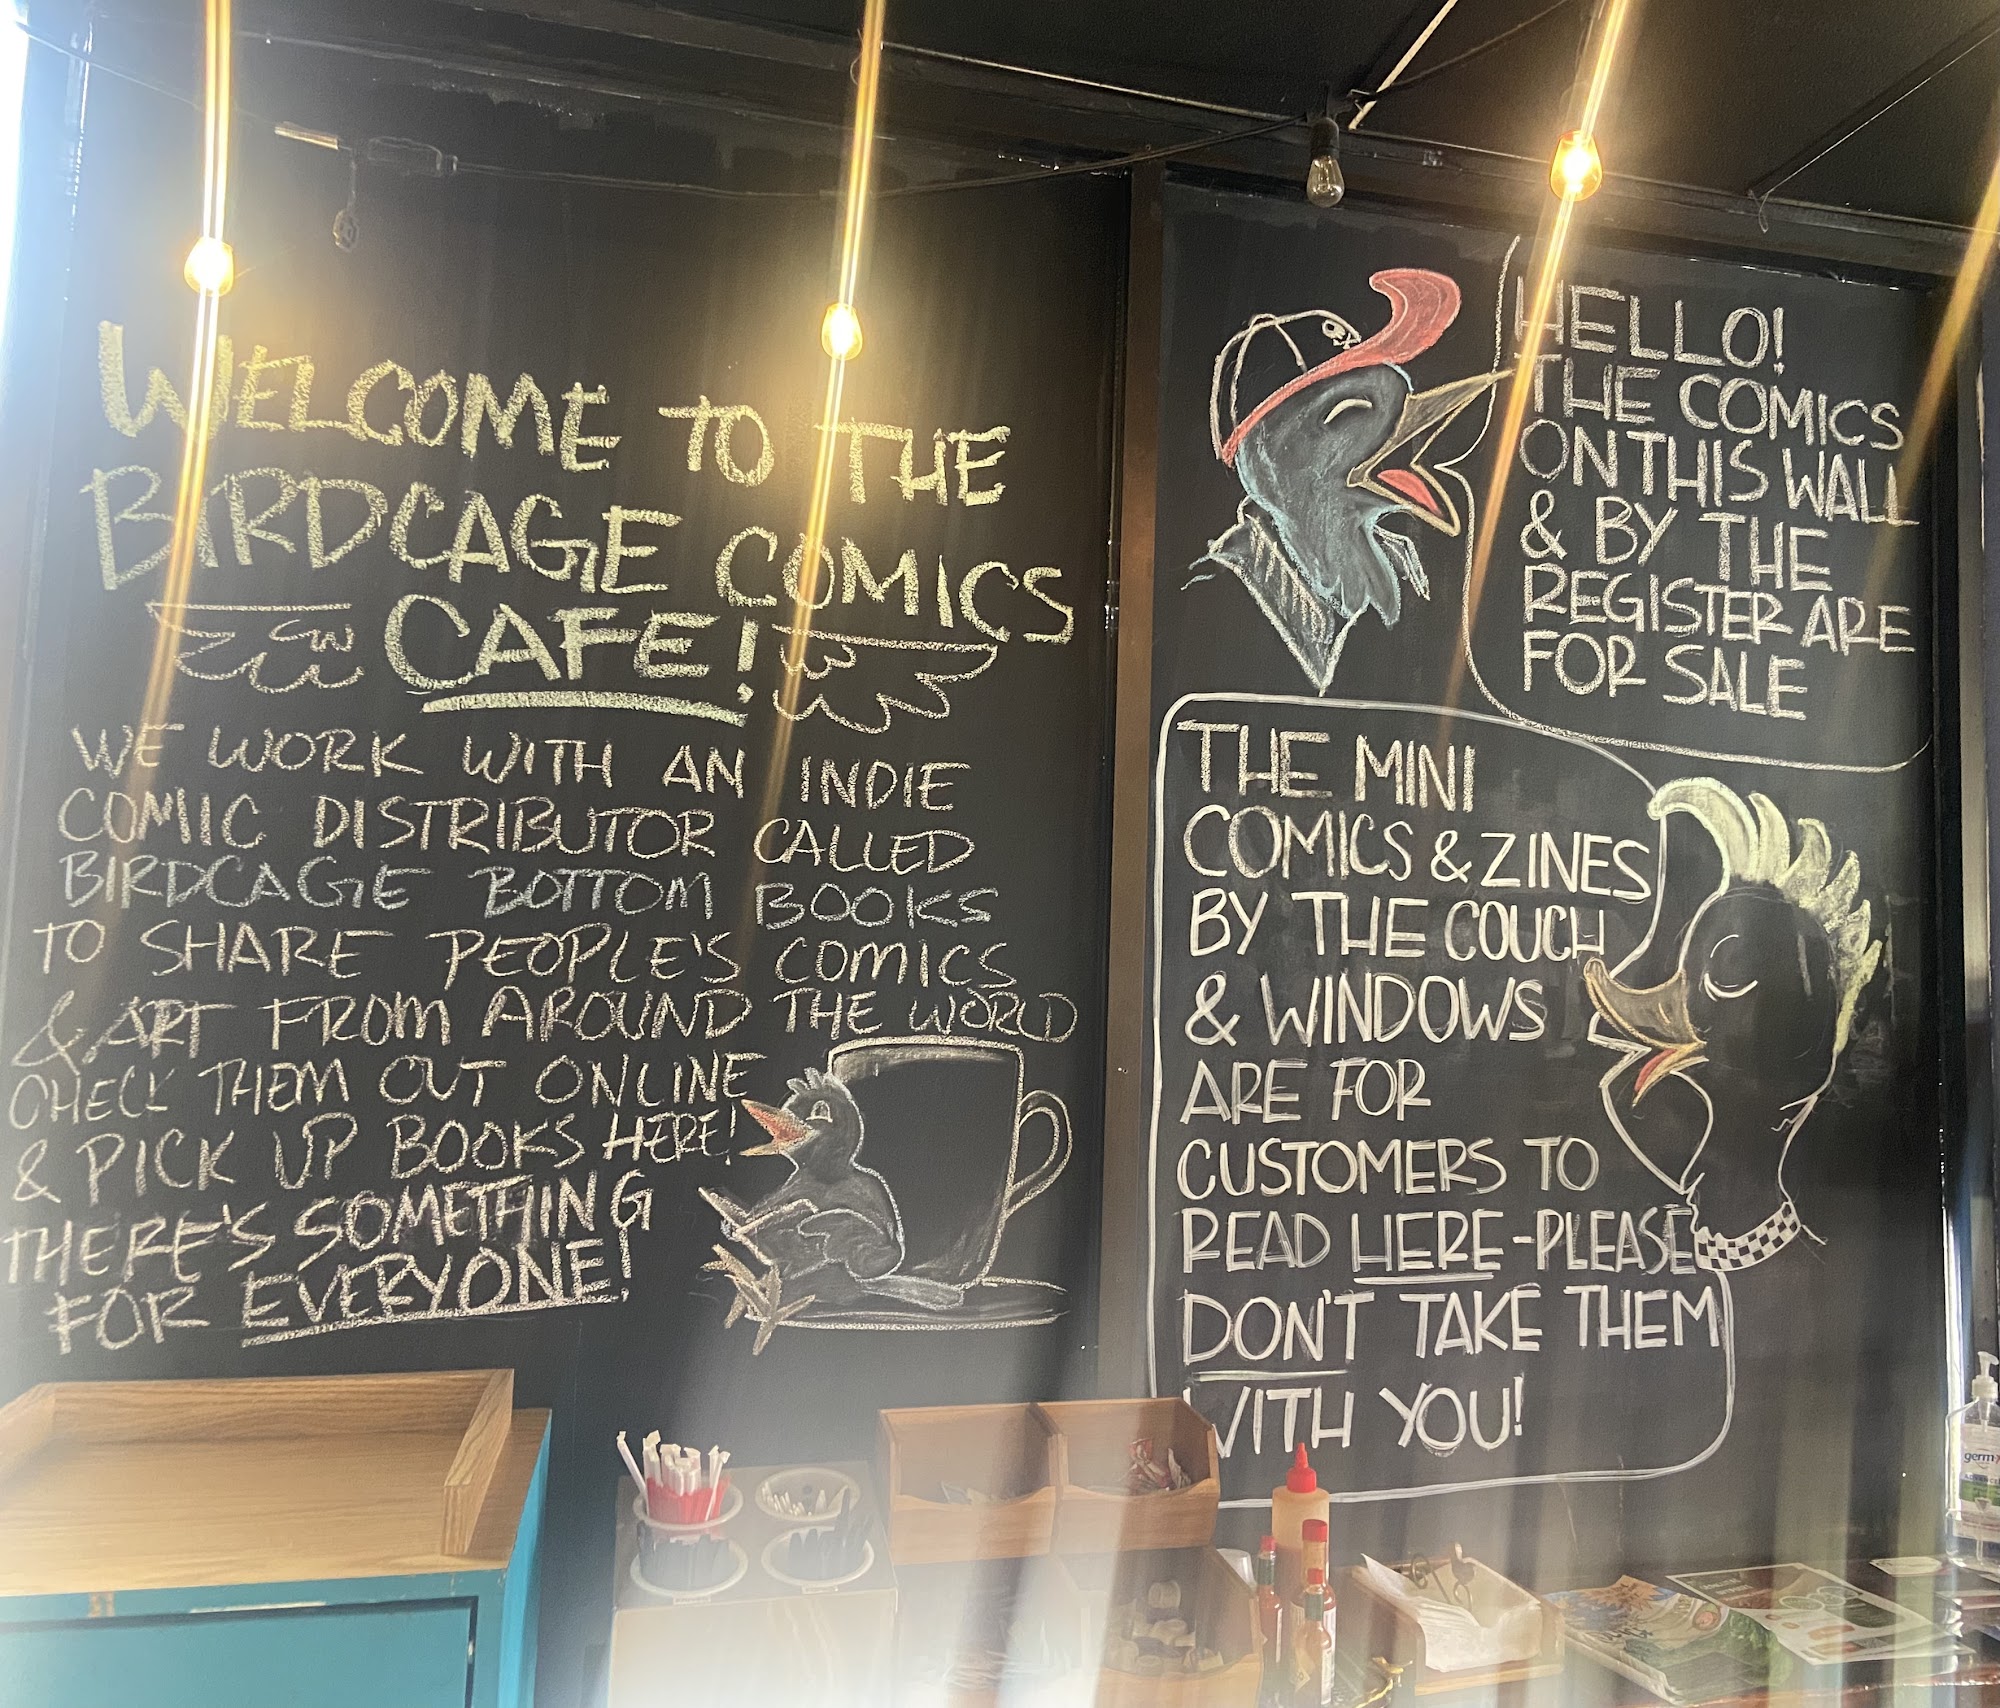 WELCOME TO THE
BIRDCAGE COMICS
CAFE!
WE WORK WITH AN INDIE
COMIC DISTRIBUTOR CALLED
BIRDCAGE BOTTOM BOOKS
TO SHARE PEOPLE'S COMICS
& ART FROM AROUND THE WORLD
CHECK THEM OUT ONLINE
& PICK UP BOOKS HERE!
THERE'S SOMETHING
FOR EVERYONE!
HELLO!
THE COMICS
ON THIS WALL
& BY THE
REGISTER ARE
FOR SALE
THE MINI
COMICS & ZINES
BY THE COUCH
& WINDOWS
ARE FOR
CUSTOMERS TO
READ HERE-PLEASE
DON'T TAKE THEM
WITH YOU!